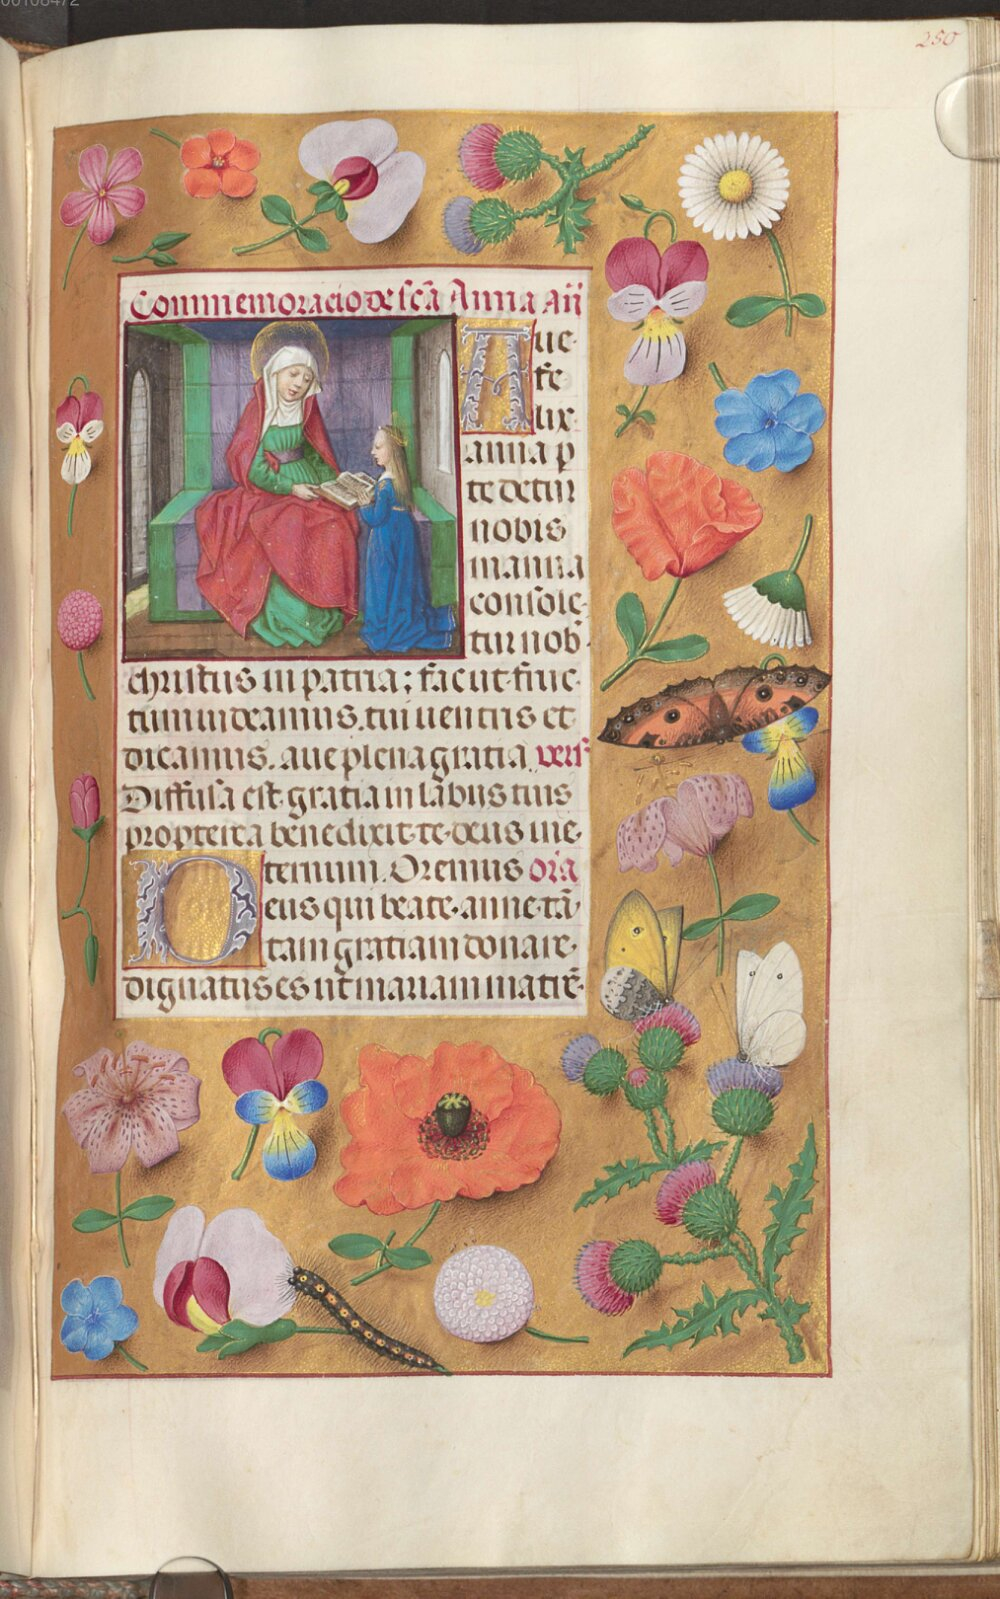 00108472
250
Commemoracio de scā Anna añ
Aue·
fe
lix·
anna p
te detur
nobis
manna
console·
tur nob·
christus in patria; fac ut fruc·
tum uideamus. tui uentris et
dicamus. aue plena gratia. vers
Diffusa est gratia in labiis tuis
propterea benedixit te deus in e·
ternum. Oremus ora
Deus qui beate anne tā
tam gratiam donare·
dignatus es ut mariam matrē·